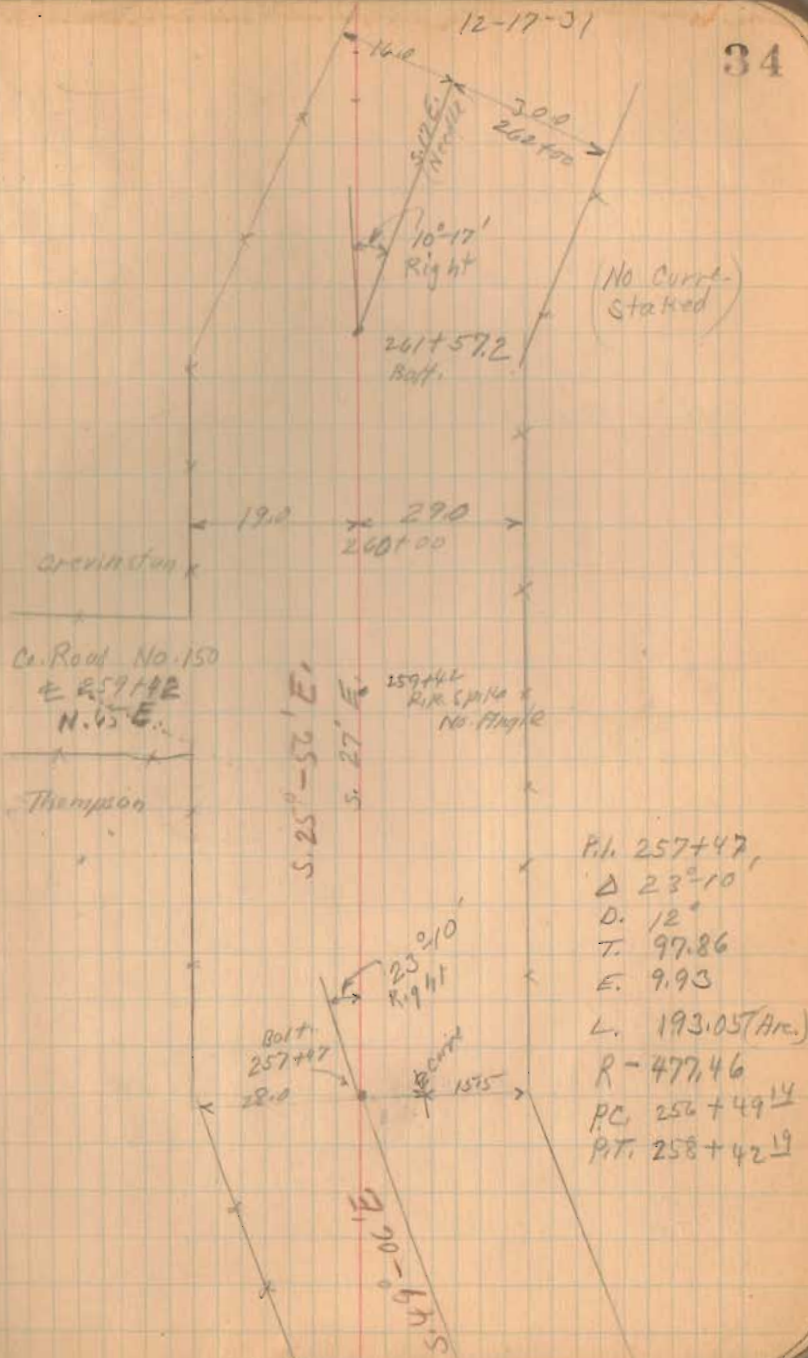 12-17-31
34
16.0
30.0
262+00
S. 12 E.
(Needle)
10°-17'
Right
(No Curve
Staked)
261+57.2
Bolt.
19.0
29.0
260+00
Co. Road No. 150
℄ 259+42
N. 65 E.
259+42
R.R. Spike
No Angle
S. 25°-56' E.
S. 27' E.
Thompson
P.I. 257+47,
Δ 23°-10'
D. 12°
T. 97.86
E. 9.93
L. 193.05 (Arc.)
R - 477.46
P.C. 256 + 49 14
P.T. 258 + 42 19
23°-10'
Right
Bolt.
257+47
28.0
Curve
15.5
S. 49°-06' E.